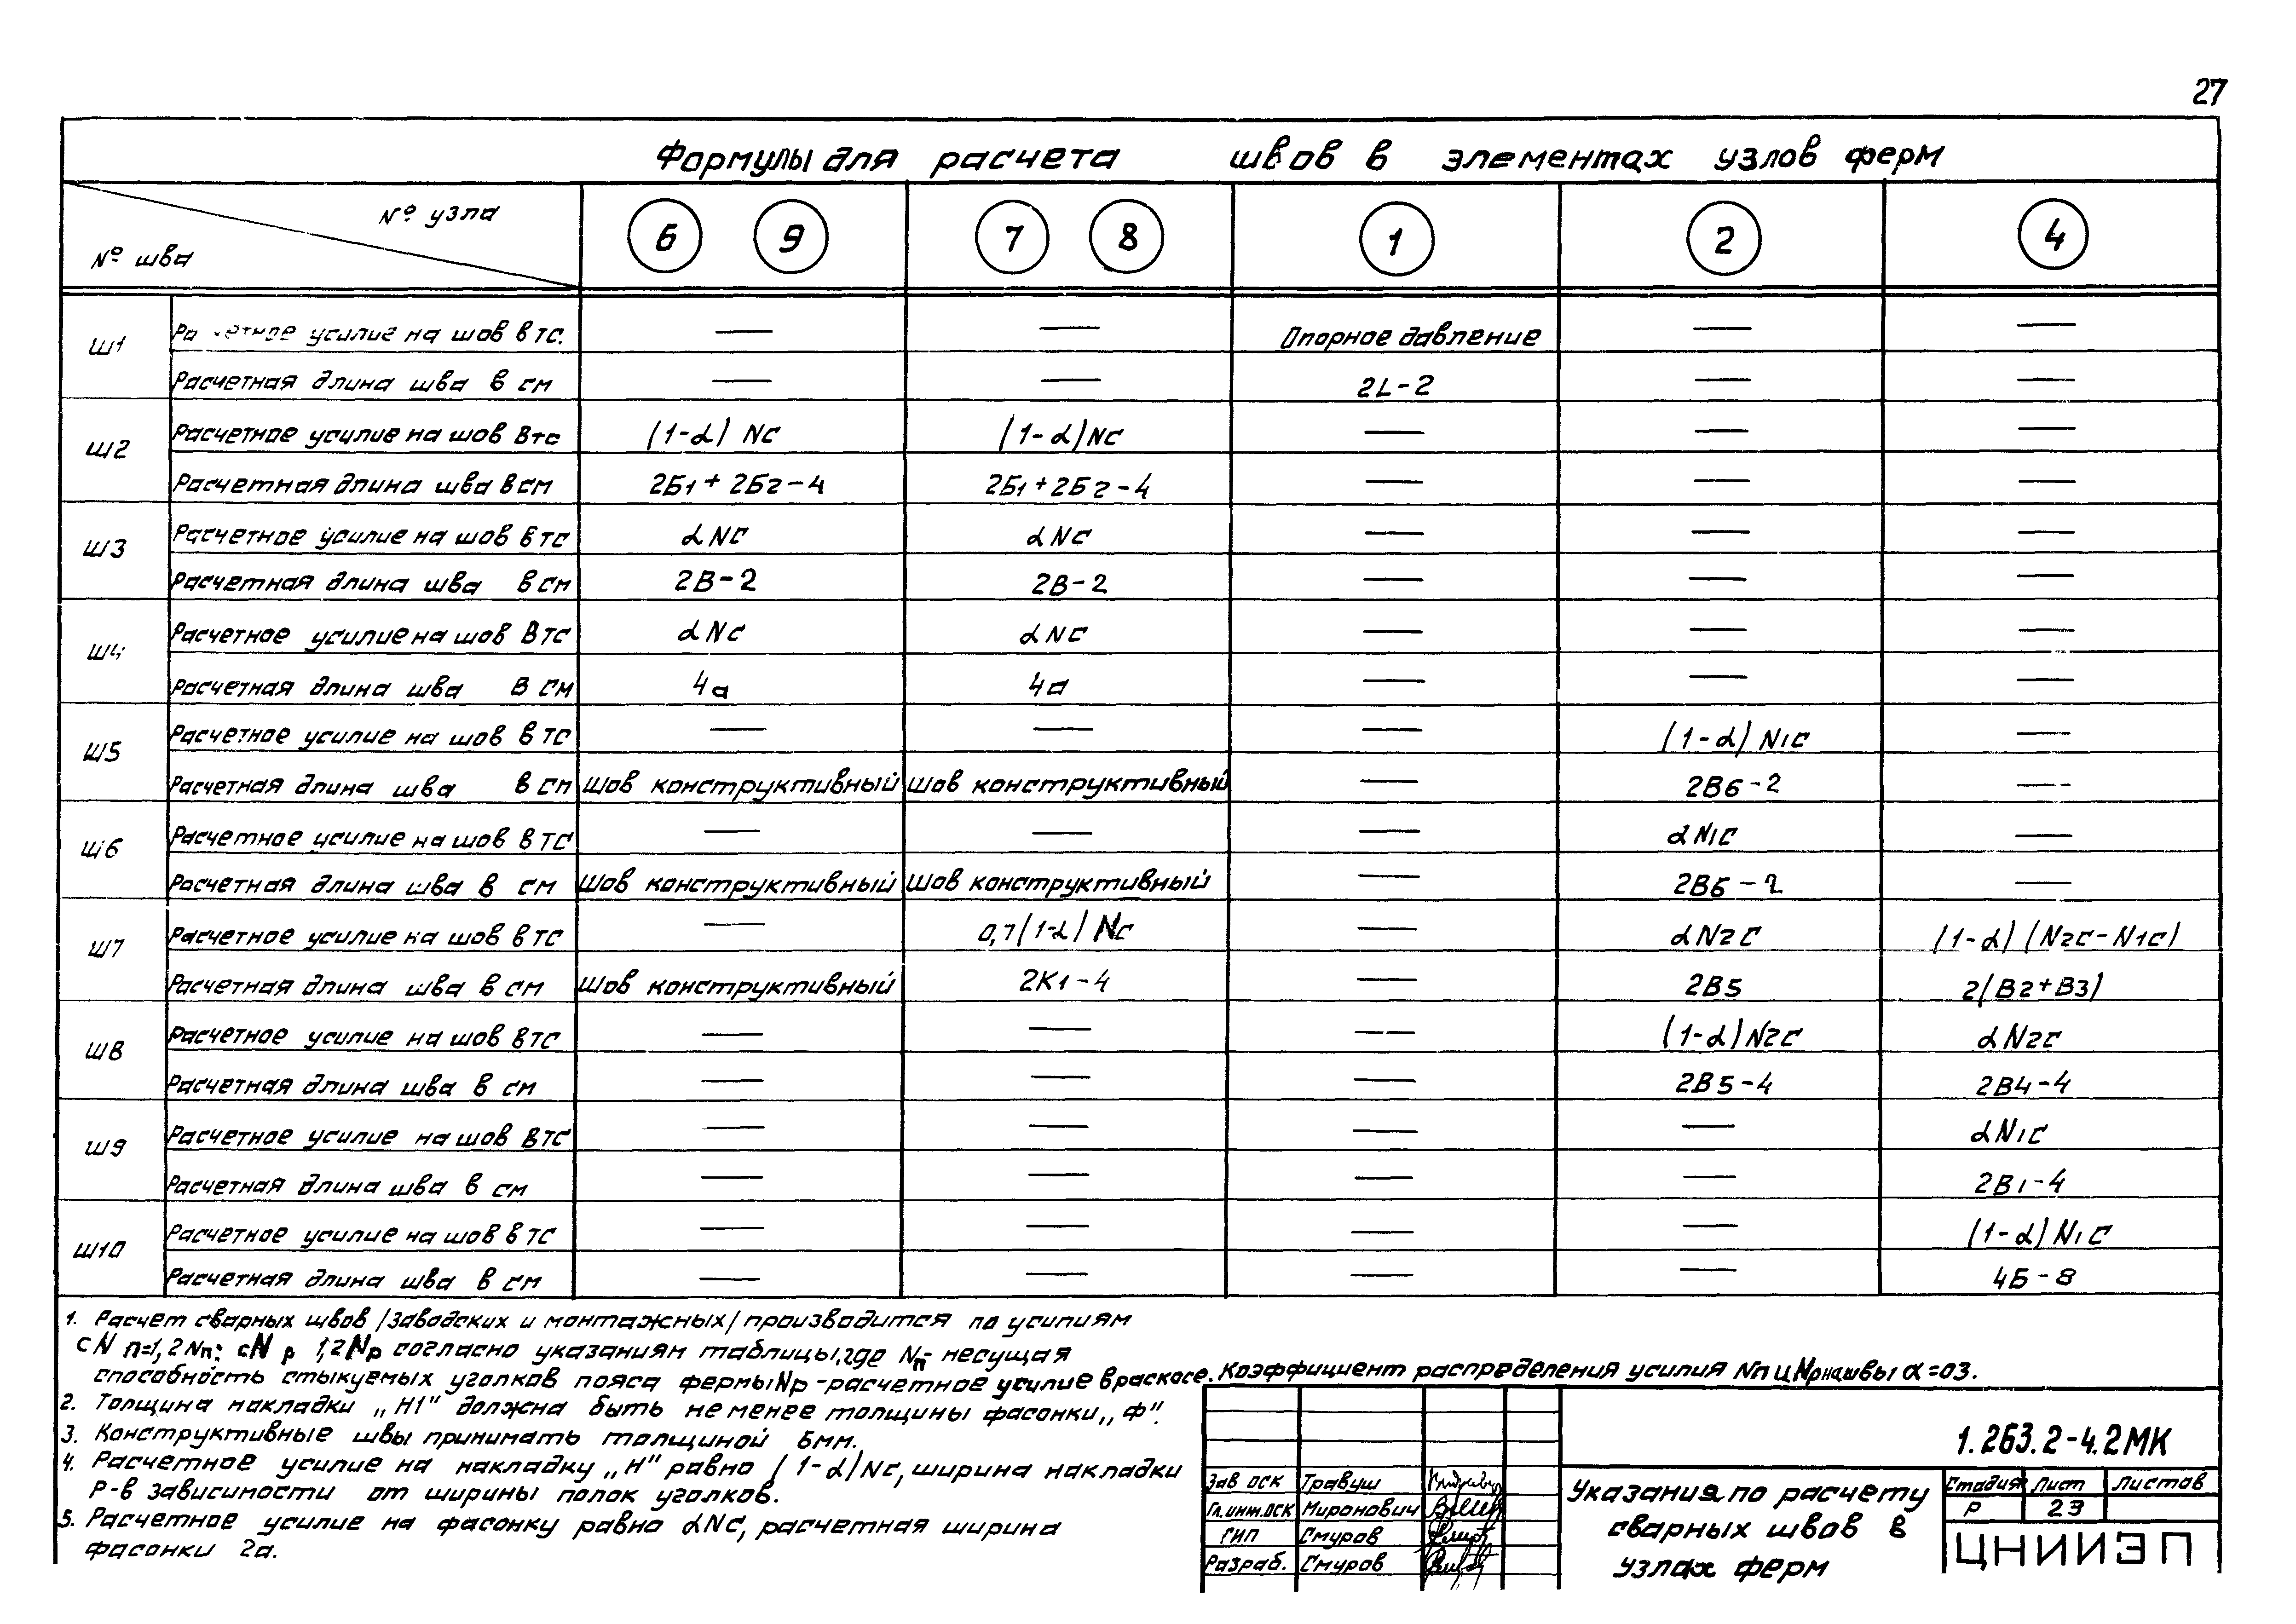 27
Формулы для расчета швов в элементах узлов ферм
№ узла
№ шва
6 9 7 8 1 2 4
Ш1 Расчетное усилие на шов в тс. — — Опорное давление — —
Расчетная длина шва в см — — 2L-2 — —
Ш2 Расчетное усилие на шов в тс (1-α) Nc (1-α) Nc — — —
Расчетная длина шва в см 2Б1 + 2Б2 - 4 2Б1 + 2Б2 - 4 — — —
Ш3 Расчетное усилие на шов в тс αNc αNc — — —
Расчетная длина шва в см 2В-2 2В-2 — — —
Ш4 Расчетное усилие на шов в тс αNc αNc — — —
Расчетная длина шва в см 4а 4а — — —
Ш5 Расчетное усилие на шов в тс — — — (1-α) N1c —
Расчетная длина шва в см Шов конструктивный Шов конструктивный — 2В6-2 —
Ш6 Расчетное усилие на шов в тс — — — αN1c —
Расчетная длина шва в см Шов конструктивный Шов конструктивный — 2В6-2 —
Ш7 Расчетное усилие на шов в тс — 0,7(1-α) Nc — αN2c (1-α) (N2c-N1c)
Расчетная длина шва в см Шов конструктивный 2К1-4 — 2В5 2(В2+В3)
Ш8 Расчетное усилие на шов в тс — — — (1-α) N2c αN2c
Расчетная длина шва в см — — — 2В5-4 2В4-4
Ш9 Расчетное усилие на шов в тс — — — — αN1c
Расчетная длина шва в см — — — — 2В1-4
Ш10 Расчетное усилие на шов в тс — — — — (1-α) N1c
Расчетная длина шва в см — — — — 4Б-8
1. Расчет сварных швов /заводских и монтажных/ производится по усилиям
cN п=1,2Nп; cN р 1,2Nр согласно указаниям таблицы, где Nп- несущая
способность стыкуемых уголков пояса фермы Nр - расчетное усилие в раскосе. Коэффициент распределения усилия Nп и Nр на швы α=03.
2. Толщина накладки „Н1" должна быть не менее толщины фасонки „Ф".
3. Конструктивные швы принимать толщиной 6мм.
4. Расчетное усилие на накладку „Н" равно (1-α) Nc, ширина накладки
Р-в зависимости от ширины полок уголков.
5. Расчетное усилие на фасонку равно αNc, расчетная ширина
фасонки 2а.
1.263.2-4.2МК
Зав ОСК Травуш
Гл.инж.ОСК Миронович
ГИП Смуров
Разраб. Смуров
Указания по расчету
сварных швов в
узлах ферм
Стадия Лист Листов
Р 23
ЦНИИЭП